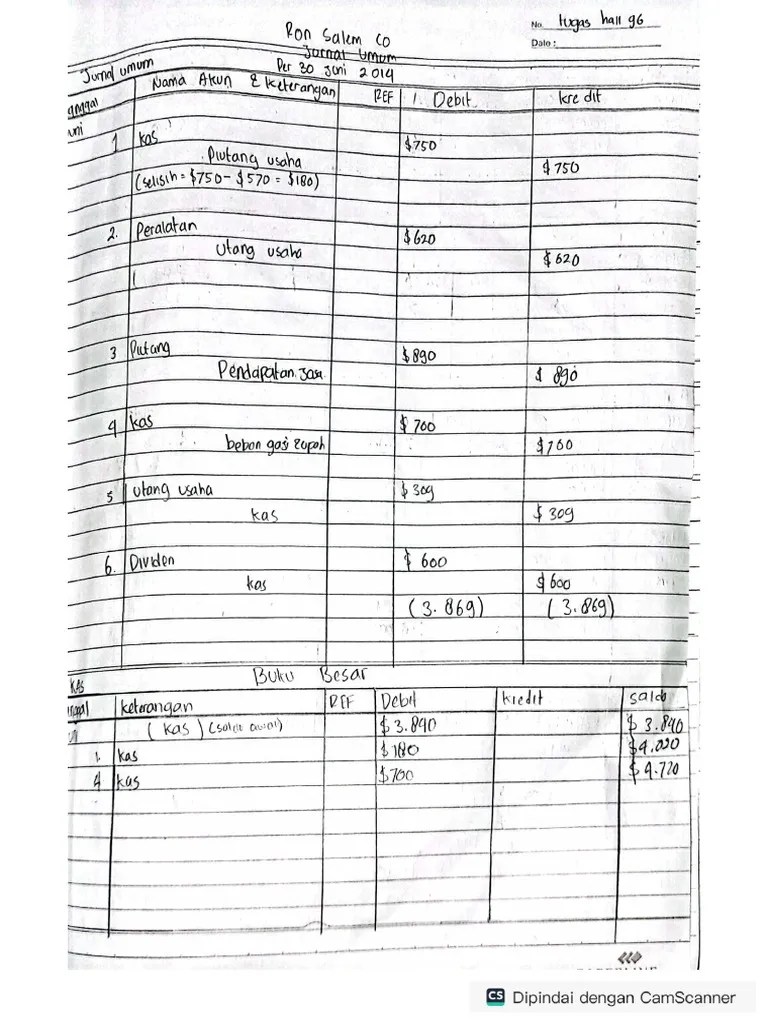 No. tugas hall 96
Date:
Ron Salem Co
Jurnal Umum
Per 30 Juni 2014
Jurnal umum
anggal Nama Akun & Keterangan REF Debit kredit
uni
1 kas $750
Piutang usaha $750
(selisih = $750 - $570 = $180)
2. Peralatan $620
Utang usaha $620
3 Piutang $890
Pendapatan Jasa $ 890
4 kas $ 700
beban gaji $700
5 Utang usaha $ 309
kas $ 309
6. Dividen $ 600
kas $ 600
(3.869) (3.869)
Buku Besar
KAS
nggal keterangan REF Debit kredit saldo
(kas) (saldo awal) $3.840 $ 3.840
1. kas $180 $4.020
4 kas $700 $4.720
CS Dipindai dengan CamScanner